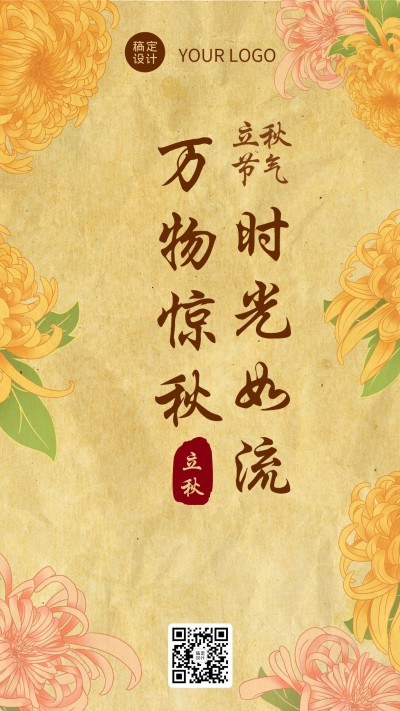 稿定
设计
YOUR LOGO
立秋
节气
时光如流
万物惊秋
立秋
稿定
设计